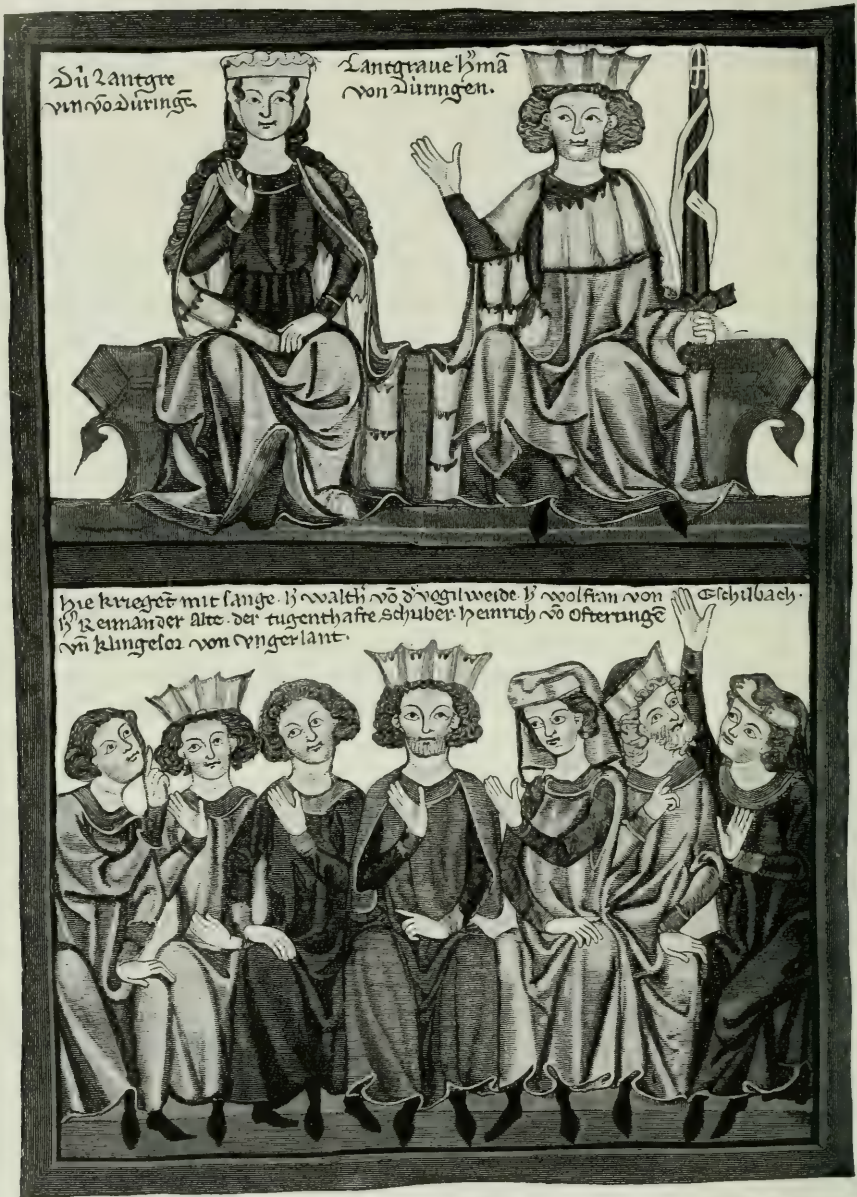 Dů Lantgre
vin võ Düringẽ
Lantgraue h'mã
von Düringen.
hie krieget mit sange. h' walth' võ d' vogilweide. h' wolfran von Eschilbach.
h' Reimander Alte. der tugenthafte Schriber. heinrich võ Ofteringẽ
vñ klingesor von vngerlant.